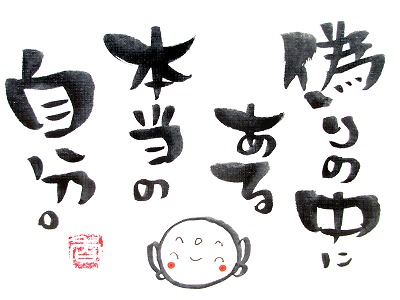 偽りの中に
ある
本当の
自分。